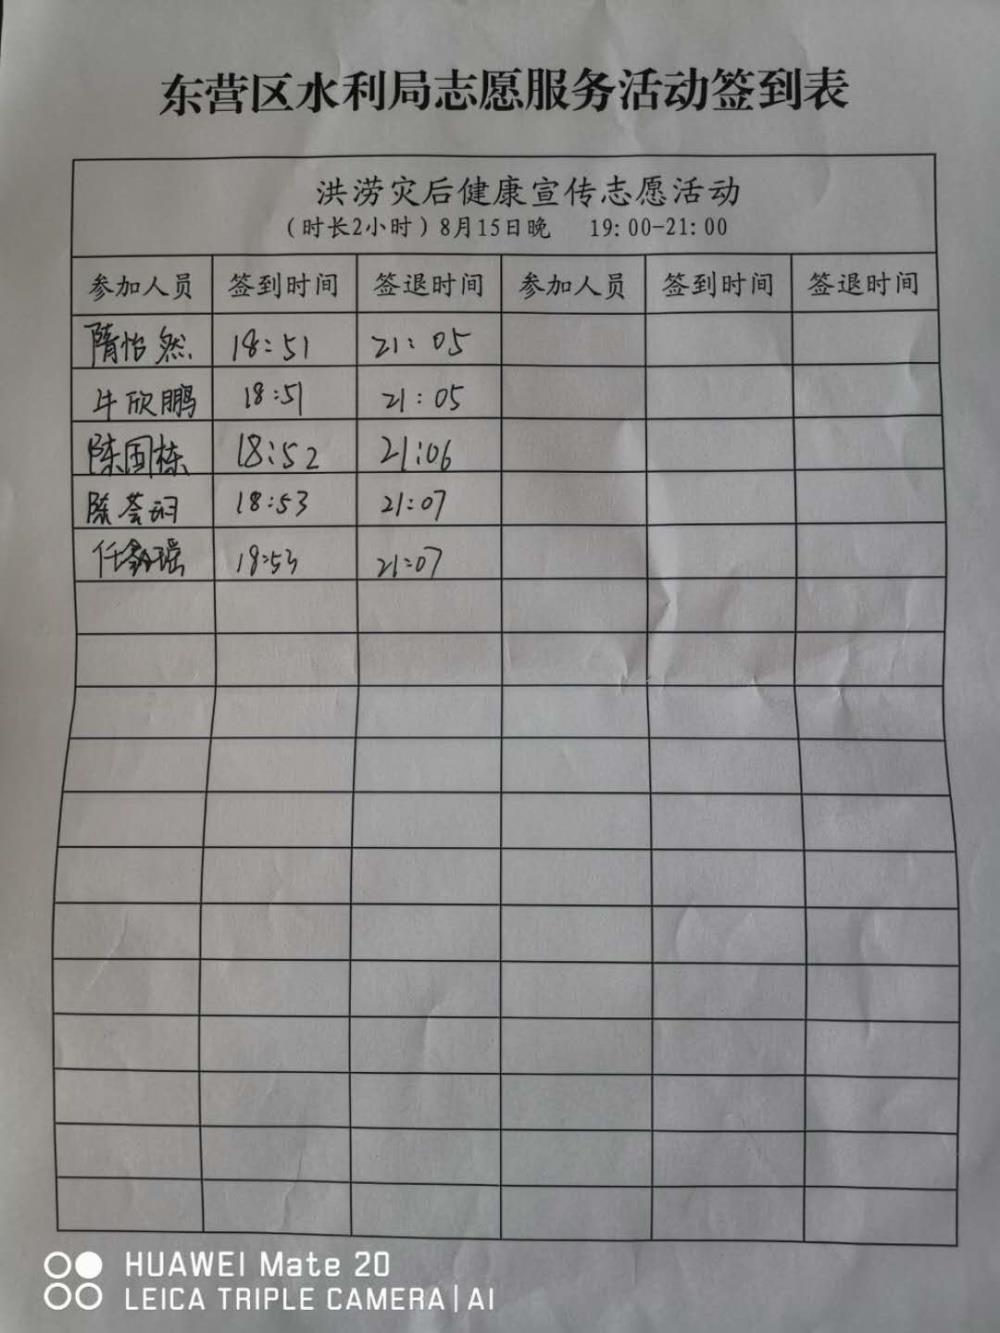 东营区水利局志愿服务活动签到表
洪涝灾后健康宣传志愿活动
（时长2小时）8月15日晚 19:00-21:00
参加人员 签到时间 签退时间 参加人员 签到时间 签退时间
隋怡然 18:51 21:05
牛欣鹏 18:51 21:05
陈国栋 18:52 21:06
陈荟羽 18:53 21:07
任 瑶 18:53 21:07
HUAWEI Mate 20
LEICA TRIPLE CAMERA | AI